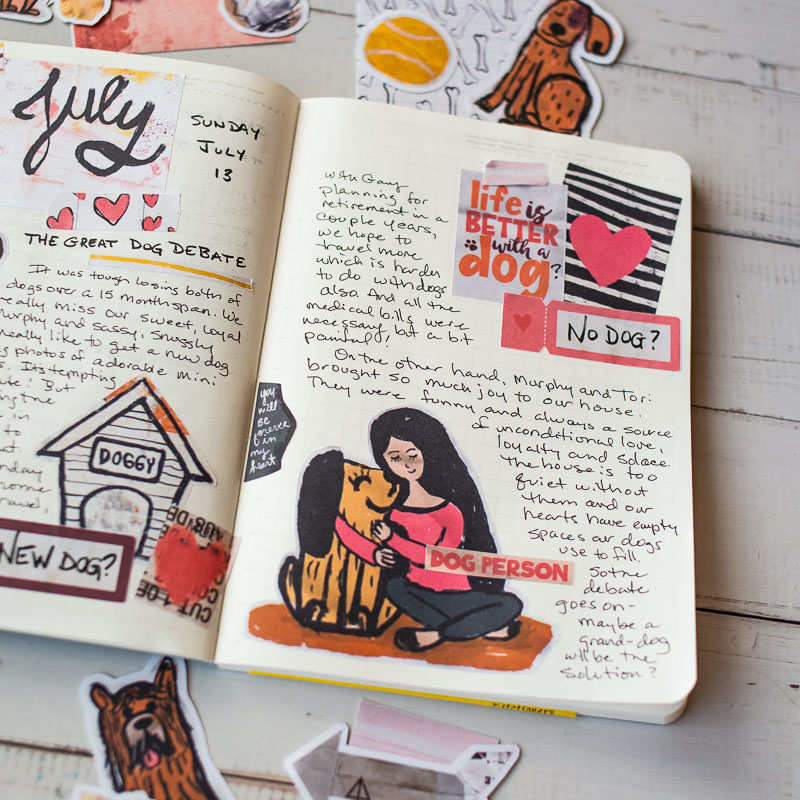 July
SUNDAY
JULY
13
THE GREAT DOG DEBATE
It was tough losing both of
dogs over a 15 month span. We
really miss our sweet, loyal
Murphy and sassy, snuggly
really like to get a new dog
photos of adorable mini
It's tempting
But
DOGGY
NEW DOG?
with Gary
planning for
retirement in a
couple years,
we hope to
travel more
which is harder
to do with dogs
also. And all the
medical bills were
necessary but a bit
painful!
life is
BETTER
with a
dog?
NO DOG?
On the other hand, Murphy and Tori
brought so much joy to our house.
They were funny and always a source
of unconditional love,
loyalty and solace.
The house is too
quiet without
them and our
hearts have empty
spaces our dogs
use to fill.
So the
debate
goes on-
maybe a
grand-dog
will be the
solution?
you
will
BE
forever
in
my
heart
DOG PERSON